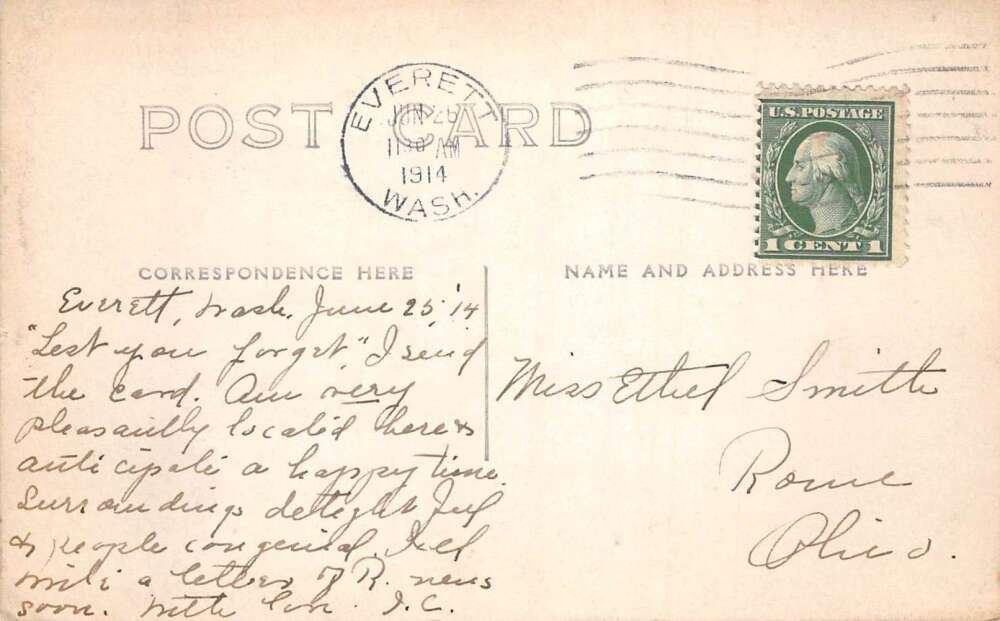 POST CARD
EVERETT
JUN 26
1130 AM
1914
WASH.
U.S. POSTAGE
1 CENT 1
CORRESPONDENCE HERE
NAME AND ADDRESS HERE
Everett, Wash. June 25, '14
"Lest you forget" I send
the card. Am very
pleasantly located here &
anticipate a happy time.
Surroundings delightful
& people congenial.
write a letter of R. news
soon. With love. I.C.
Miss Ethel Smith
Rome
Ohio.